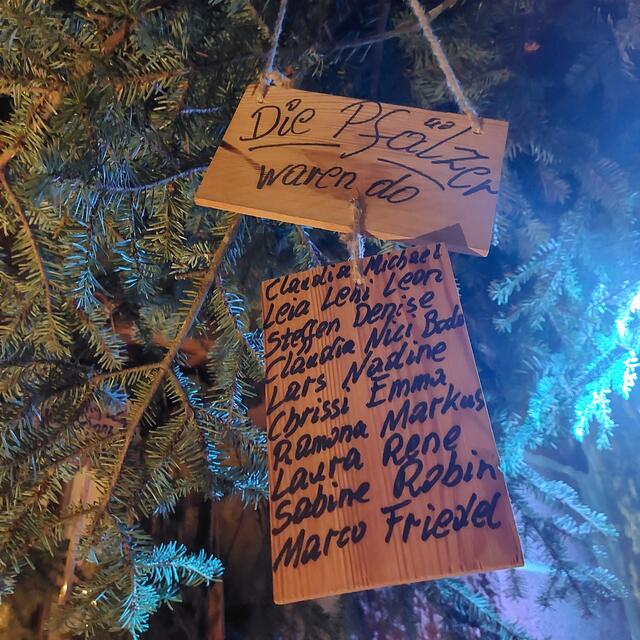 Die Pfälzer
waren do
Claudia Michael
Leia Leni Leon
Steffen Denise
Claudia Nici Bodo
Lars Nadine
Chrissi Emma
Ramona Markus
Laura Rene
Sabine Robin
Marco Friedel